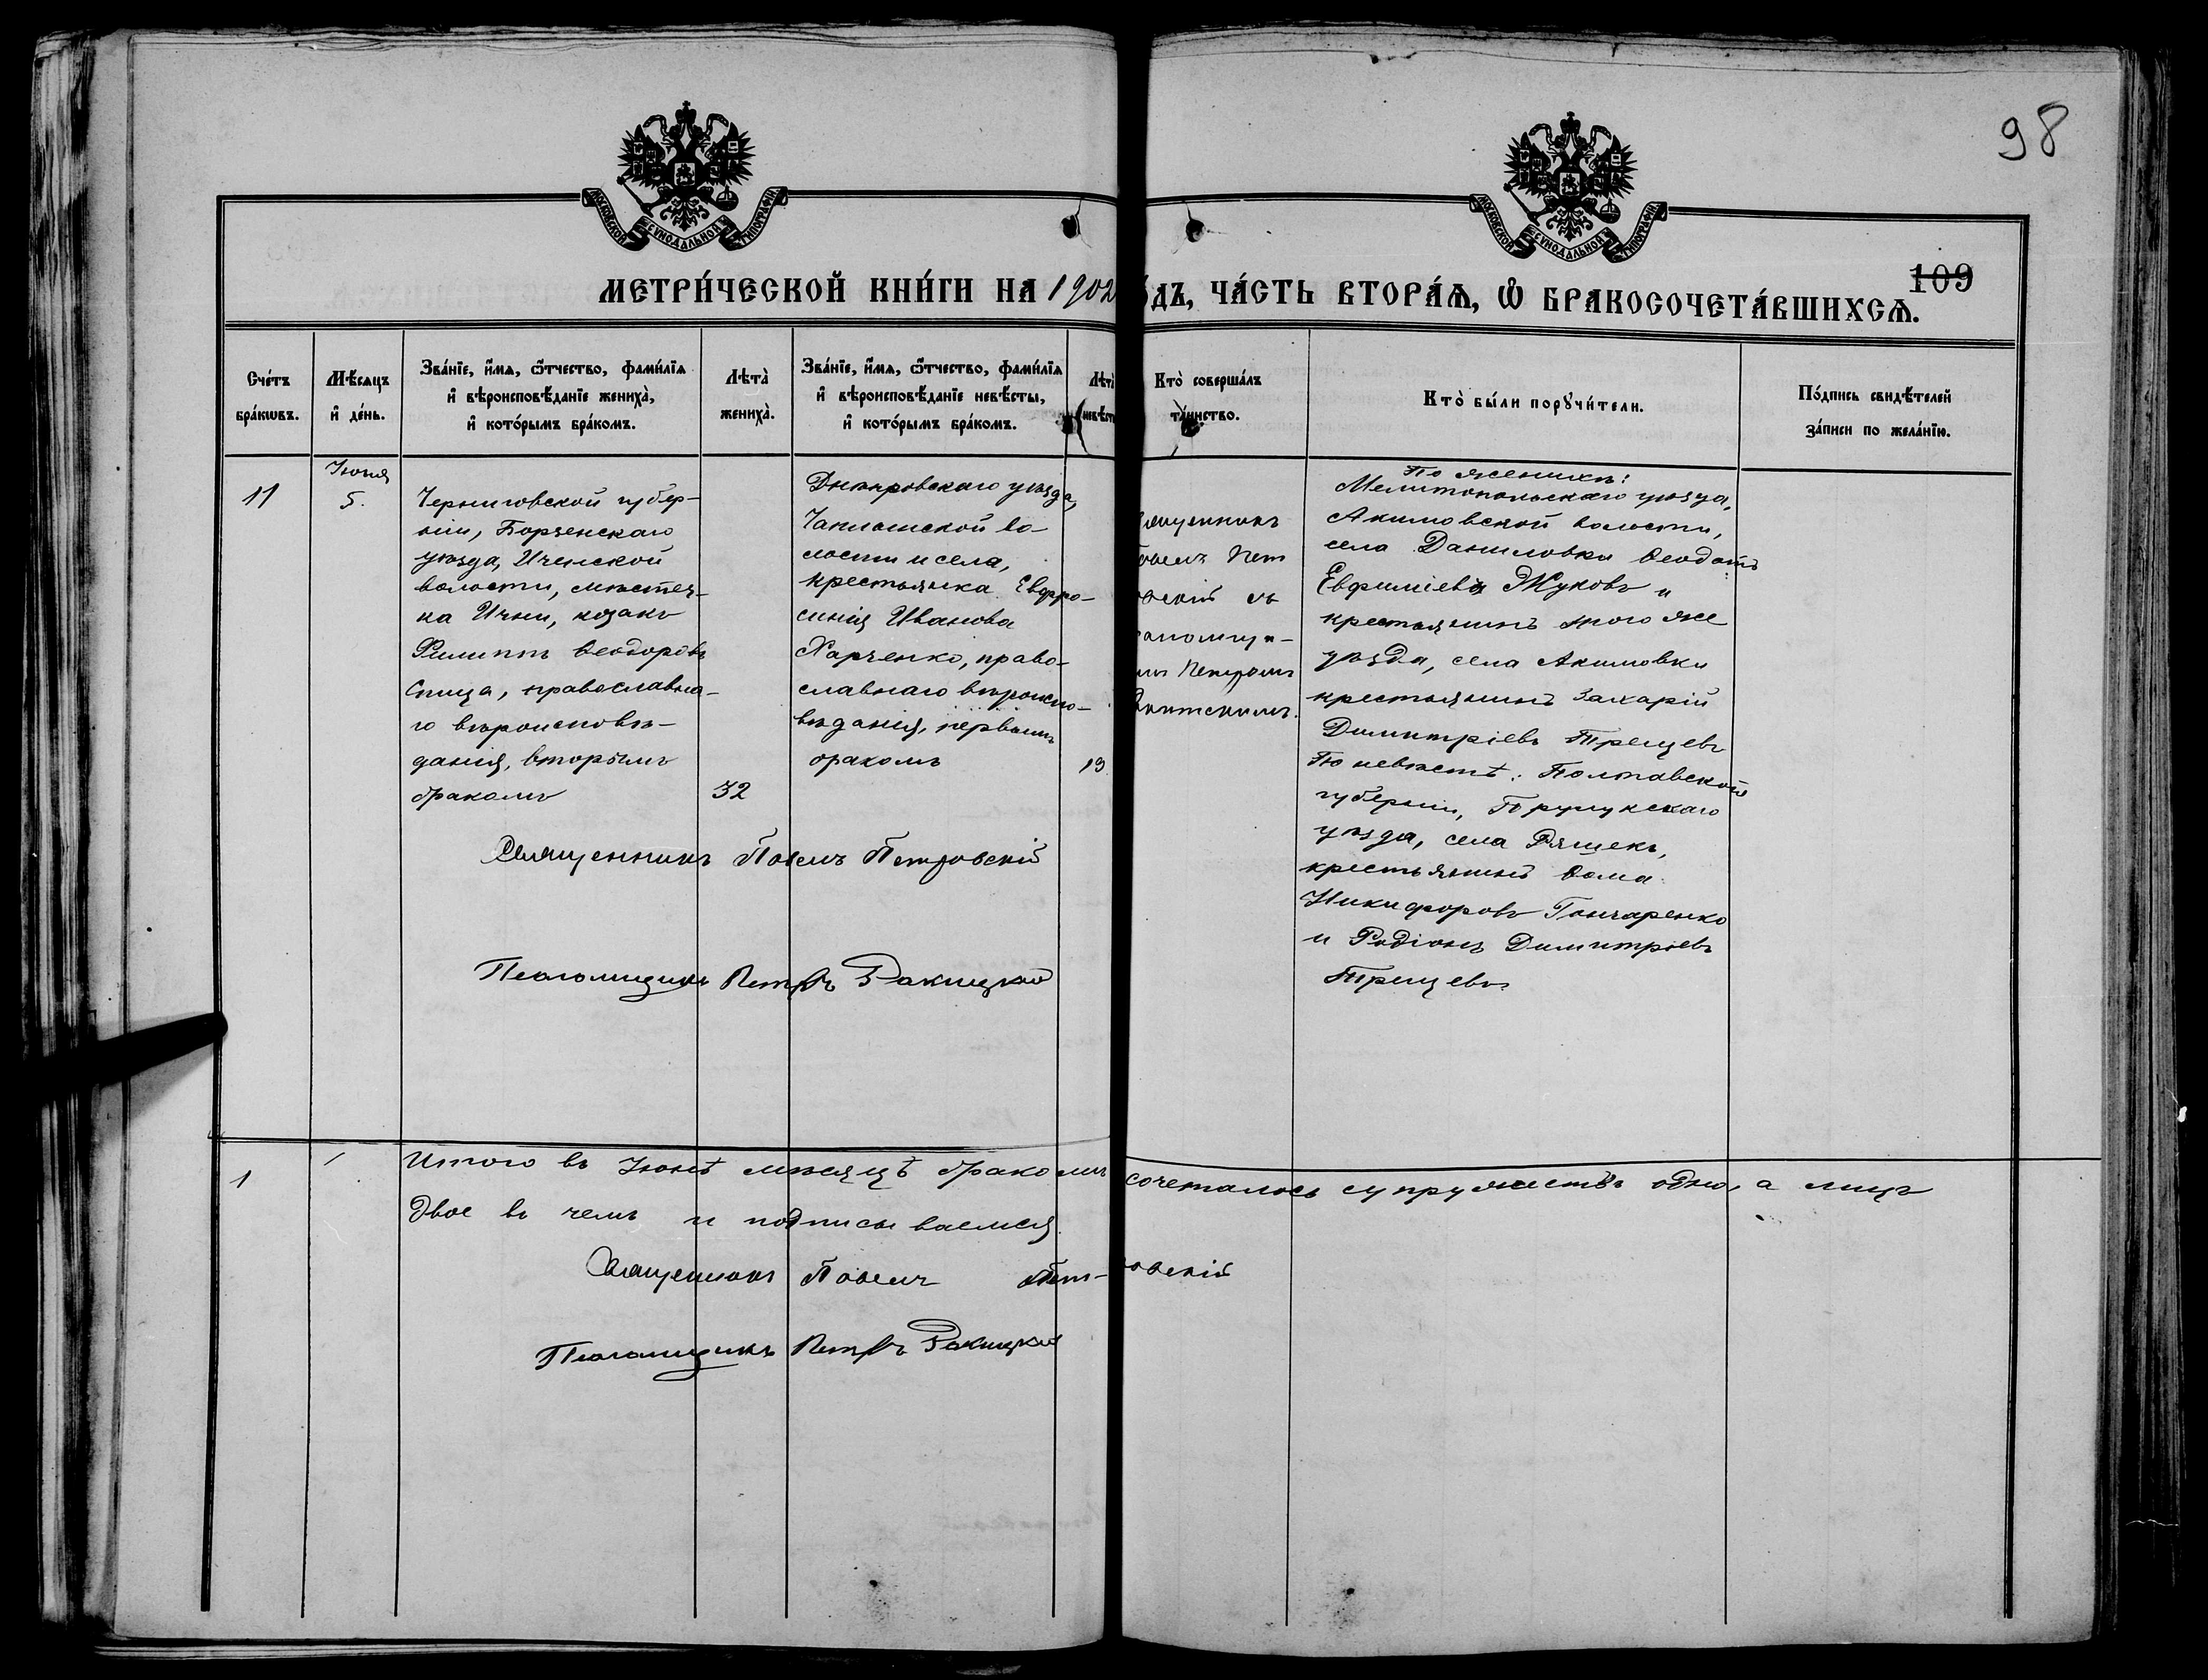 98
МОСКОВСКОЙ СѴНОДАЛЬНОЙ ТИПОГРАФІИ
МОСКОВСКОЙ СѴНОДАЛЬНОЙ ТИПОГРАФІИ
109
МЕТРИ́ЧЕСКОЙ КНИ́ГИ НА 1902
о́дъ, ЧА́СТЬ ВТОРА́Ѧ, Ѡ҆ БРАКОСОЧЕТА́ВШИХСѦ.
Сче́тъ
бра́кѡвъ.
Мѣ́сяцъ
и҆ де́нь.
Зва́нїе, и҆́мѧ, ѻ҆́тчество, фами́лїѧ
и҆ вѣроисповѣ́данїе жениха̀,
и҆ кото́рымъ бра́комъ.
Лѣта̀
жениха̀.
Зва́нїе, и҆́мѧ, ѻ҆́тчество, фами́лїѧ
и҆ вѣроисповѣ́данїе невѣ́сты,
и҆ кото́рымъ бра́комъ.
Лѣта̀
невѣст
Кто̀ соверша́лъ
та́инство.
Кто̀ бы́ли порꙋчи́тели.
По́дпись свидѣ́телей
за́писи по жела́нїю.
11
Іюня
5.
Черниговской губер-
ніи, Борзенскаго
уѣзда, Иченской
волости, мѣстеч-
ка Ични, козакъ
Филиппъ Ѳеодоровъ
Спица, православна-
го вѣроисповѣ-
данія, вторымъ
бракомъ
32
Днѣпровскаго уѣзда,
Чаплинской во-
лости и села,
крестьянка Евфро-
синія Иванова
Харченко, право-
славнаго вѣроиспо-
вѣданія, первымъ
бракомъ
19.
вященникъ
авелъ Пет
овскій съ
саломщи-
мъ Петромъ
акитскимъ.
По женихѣ:
Мелитопольскаго уѣзда,
Акимовской волости,
села Даниловки Ѳеодотъ
Евфиміевъ Жуковъ и
крестьянинъ того же
уѣзда, села Акимовки
крестьянинъ Захарій
Димитріевъ Трещевъ
По невѣстѣ: Полтавской
губерніи, Прилукскаго
уѣзда, села Ряшекъ,
крестьянинъ Ѳома
Никифоровъ Гончаренко
и Родіонъ Димитріевъ
Трещевъ
Священникъ Павелъ Петровскій
Псаломщикъ Петръ Ракицкій
1
1
Итого въ Іюнѣ мѣсяцѣ бракомъ сочеталось супружествъ одно, а лицъ
двое въ чемъ и подписываемся.
Священникъ Павелъ Пет-ровскій
Псаломщикъ Петръ Ракицкій